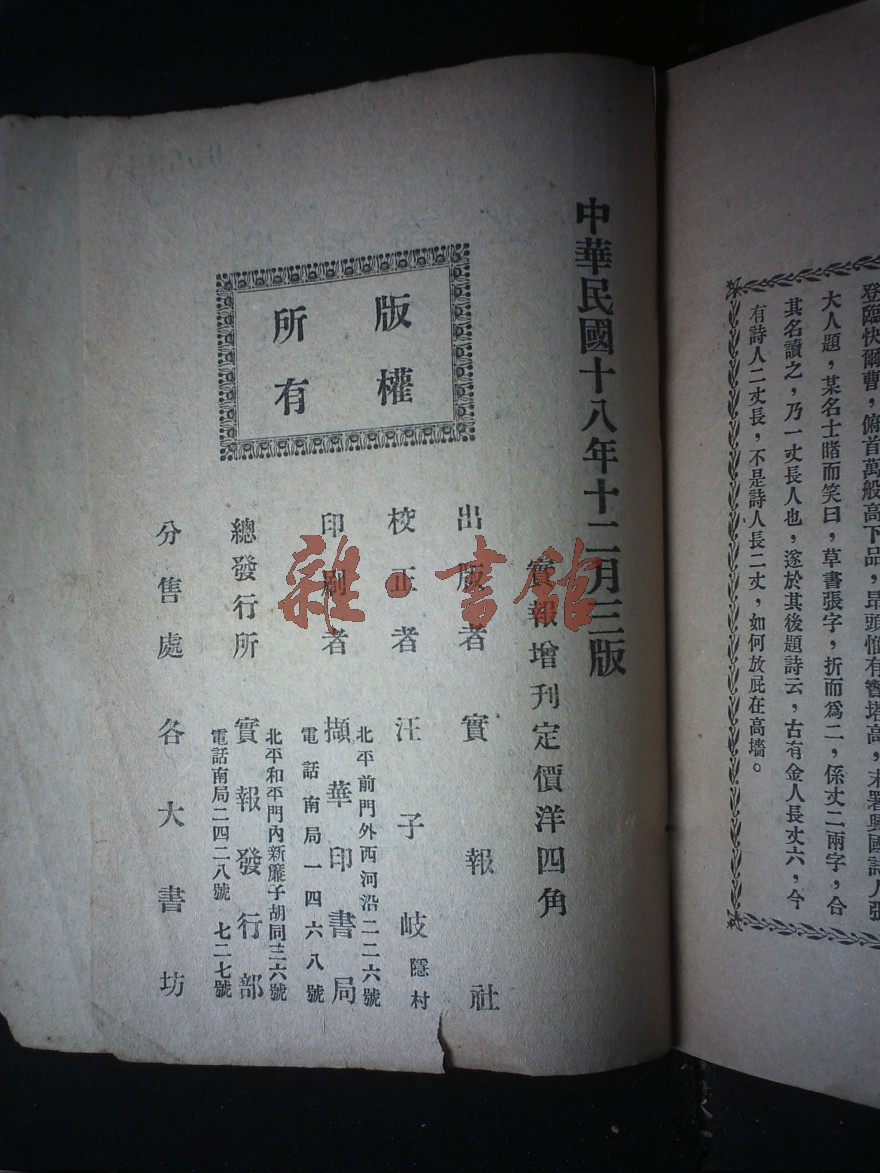 登臨快爾曹，俯首萬般高下品，昂頭惟有寶塔高，末署興國詩人張
大人題，某名士睹而笑曰，草書張字，折而為二，係丈二兩字，合
其名讀之，乃一丈長人也，遂於其後題詩云，古有金人長丈六，今
有詩人二丈長，不是詩人長二丈，如何放屁在高墻。
中華民國十八年十二月三版
實報增刊定價洋四角
版權
所有
出版者 實報社
校正者 汪子岐 隱村
北平前門外西河沿二二六號
印刷者 擷華印書局
電話南局一四六八號
北平和平門內新簾子胡同三六號
總發行所 實報發行部
電話南局二四二八號 七二七號
分售處 各大書坊
雜·書館